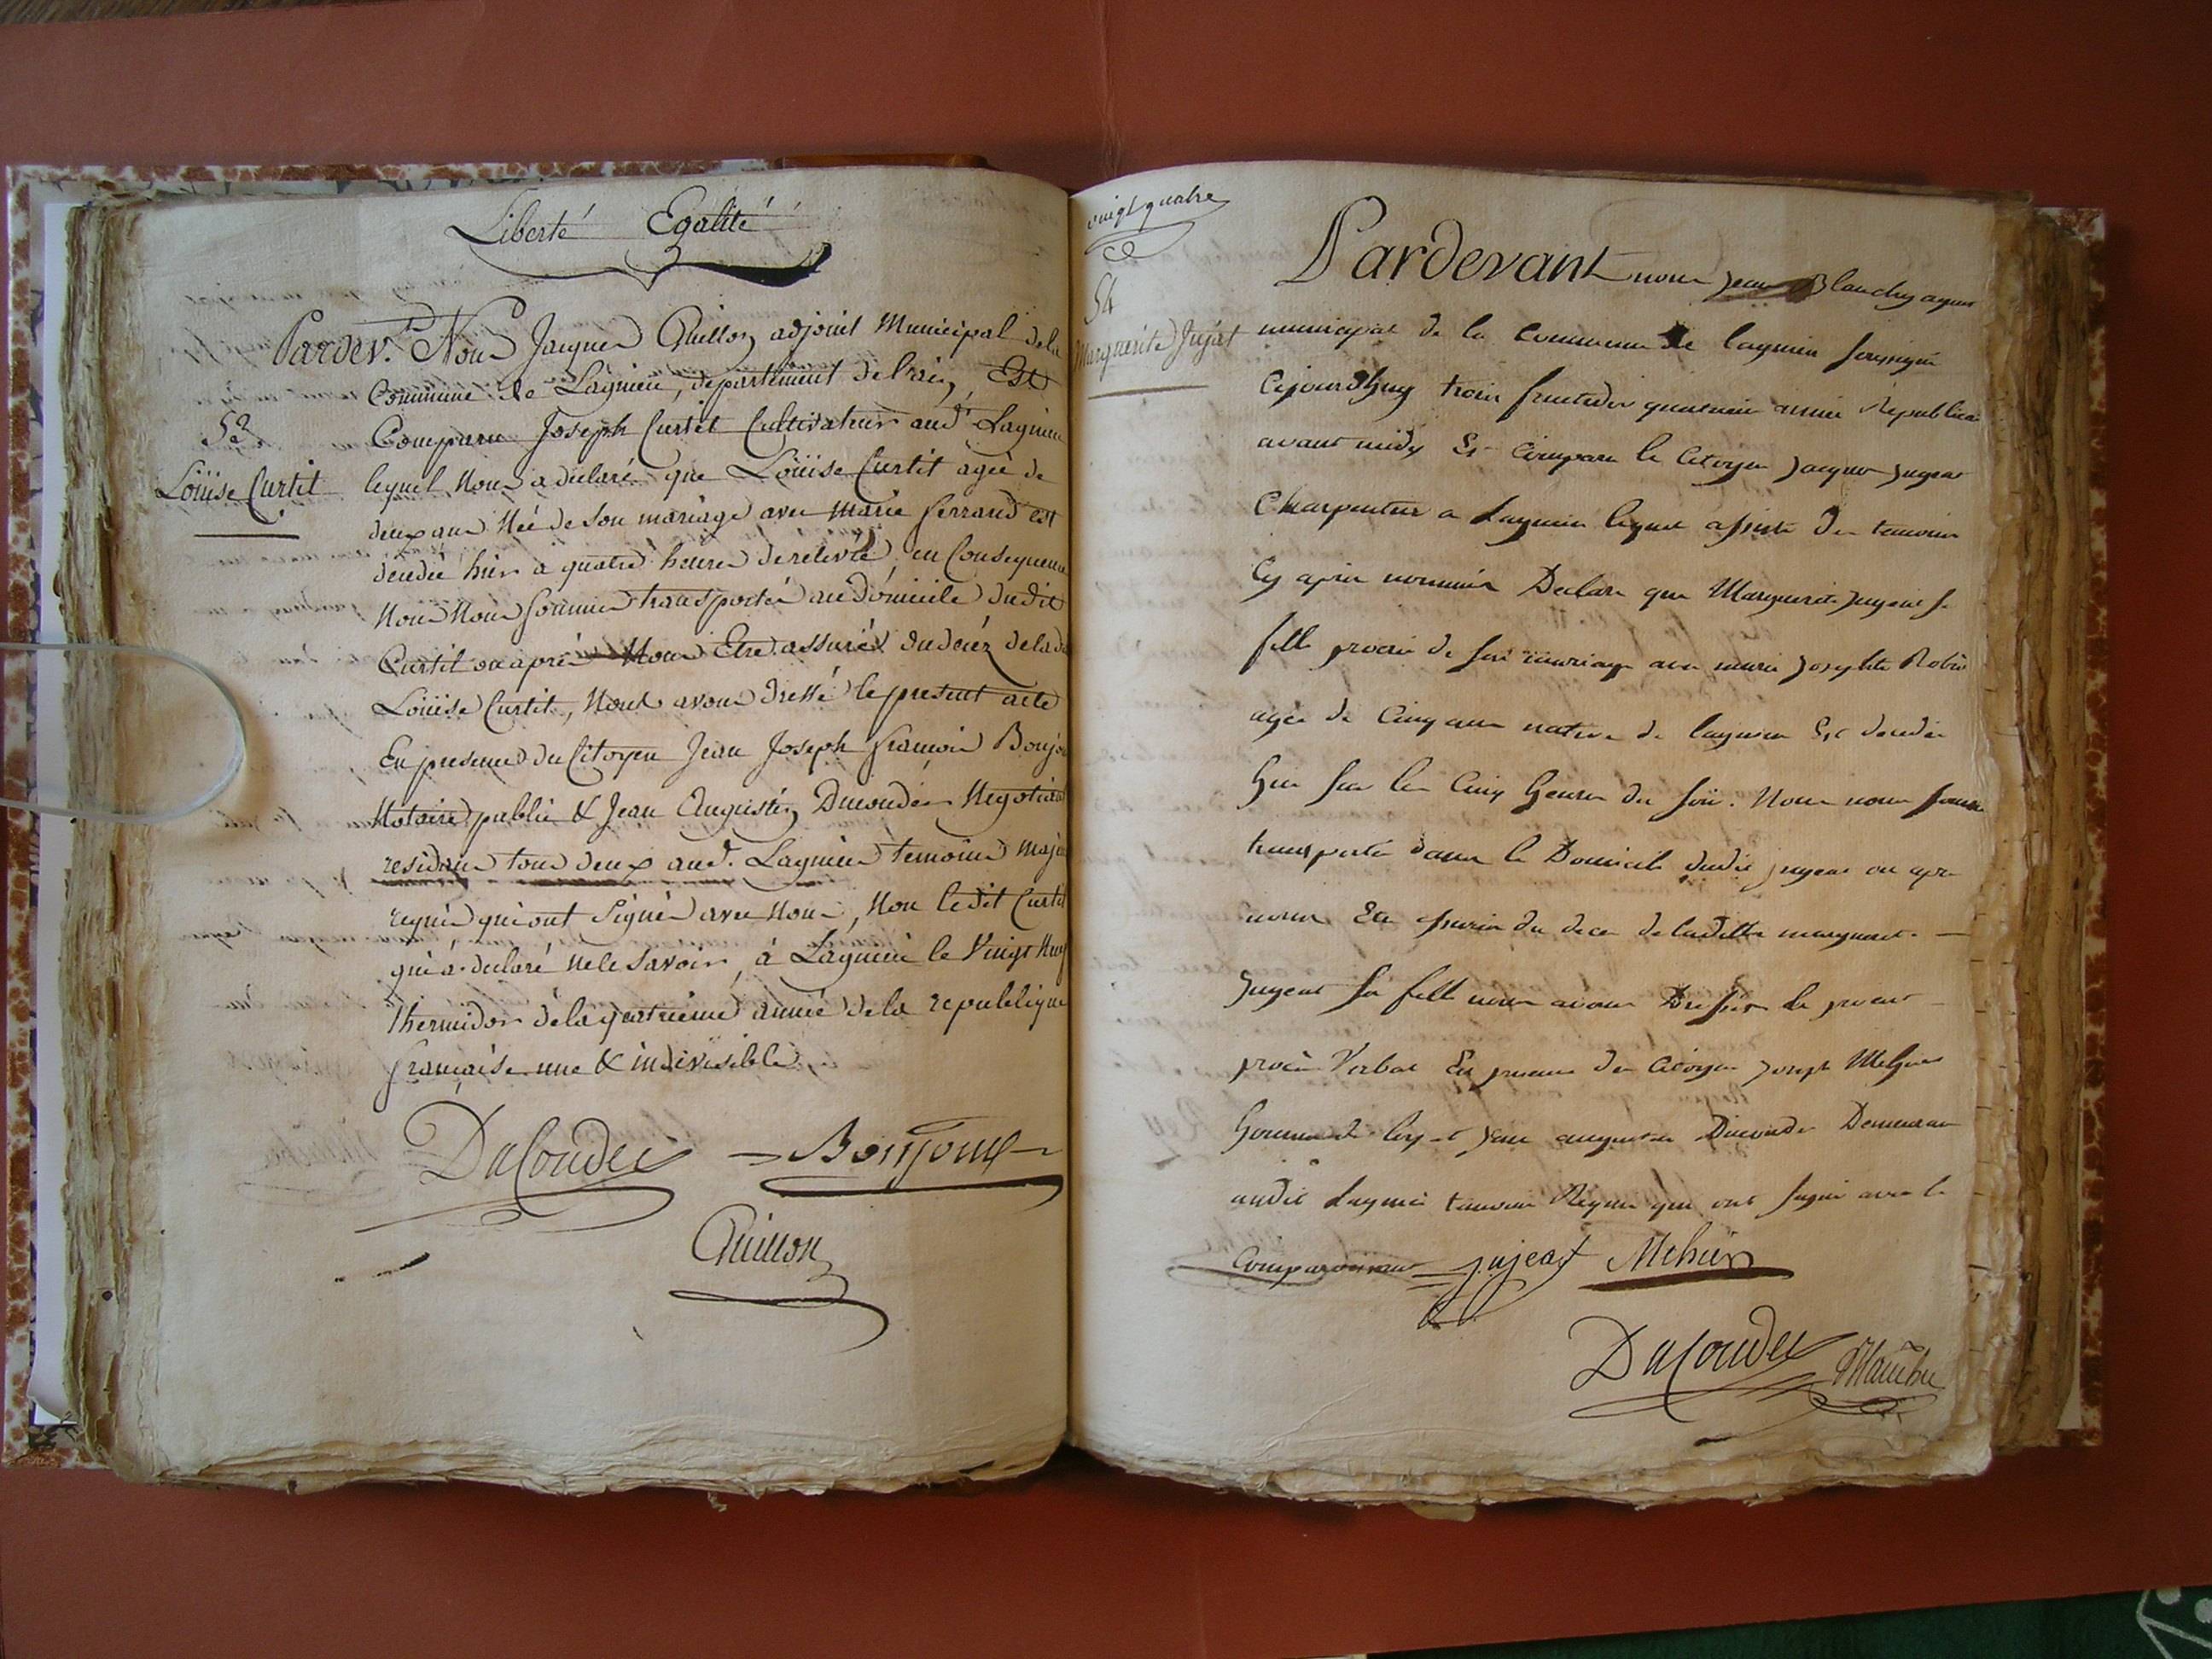 Liberté Egalité
Pardev.t Nous Jacques Quillon adjoint Municipal dela
Commune de Lagnieu, departement de l'ain, Est
53
Comparu Joseph Curtit Cultivateur aud.t Lagnieu
Loüise Curtit
lequel Nous a declaré que Loüise Curtit agée de
deux ans Née de son mariage avec Marie Ferrand est
decedée hier à quatre heures de relevée, en Consequence
Nous Nous sommes transportés au domicile dudit
Curtit ou après Nous Etre assurés du decéz de lad
Loüise Curtit, Nous avons dressé le present acte
En presence du Citoyen Jean Joseph François Bonjou
Notoire public & Jean Augustin Ducoudés Negotian
residans tous deux aud. Lagnieu temoins Maje
requis qui ont signés avec Nous, Non ledit Curtit
qui a declaré ne le savoir, à Lagnieu le Vingt
Thermidor de la quatrieme année de la republique
française une & indivisible
DuCoudei Bonjour
Quillon
vingt quatre
54
Marguerite Jujat
Pardevant nous Jean Blanchy agent
municipal de la Commune de lagnieu soussigné
Cejourdhuy trois fructidor quatrieme année Republica
avant midy Est Comparu le Citoyen Jacques Jugeat
Charpentier a Lagnieu lequel assisté des temoins
Cy apres nommés Declare que Marguerite Jugeat sa
fille procrée de son mariage avec marie Josephte Robin
agée de Cinq ans native de lagnieu Est decedée
hier sur les Cinq heures du soir. Nous nous sommes
transportés dans le Domicile dudit jugeat ou apres
nous Etre assurés du deces de laditte marguerite
Jugeat sa fille nous avons Dresser le present
procès Verbal En presence des Citoyens Joseph Mehier
Jean augustin Ducoudes Demeurant
audit Lagnieu temoins Requis qui ont signé avec le
Comparoissant jujeat Mehier
DuCoudei